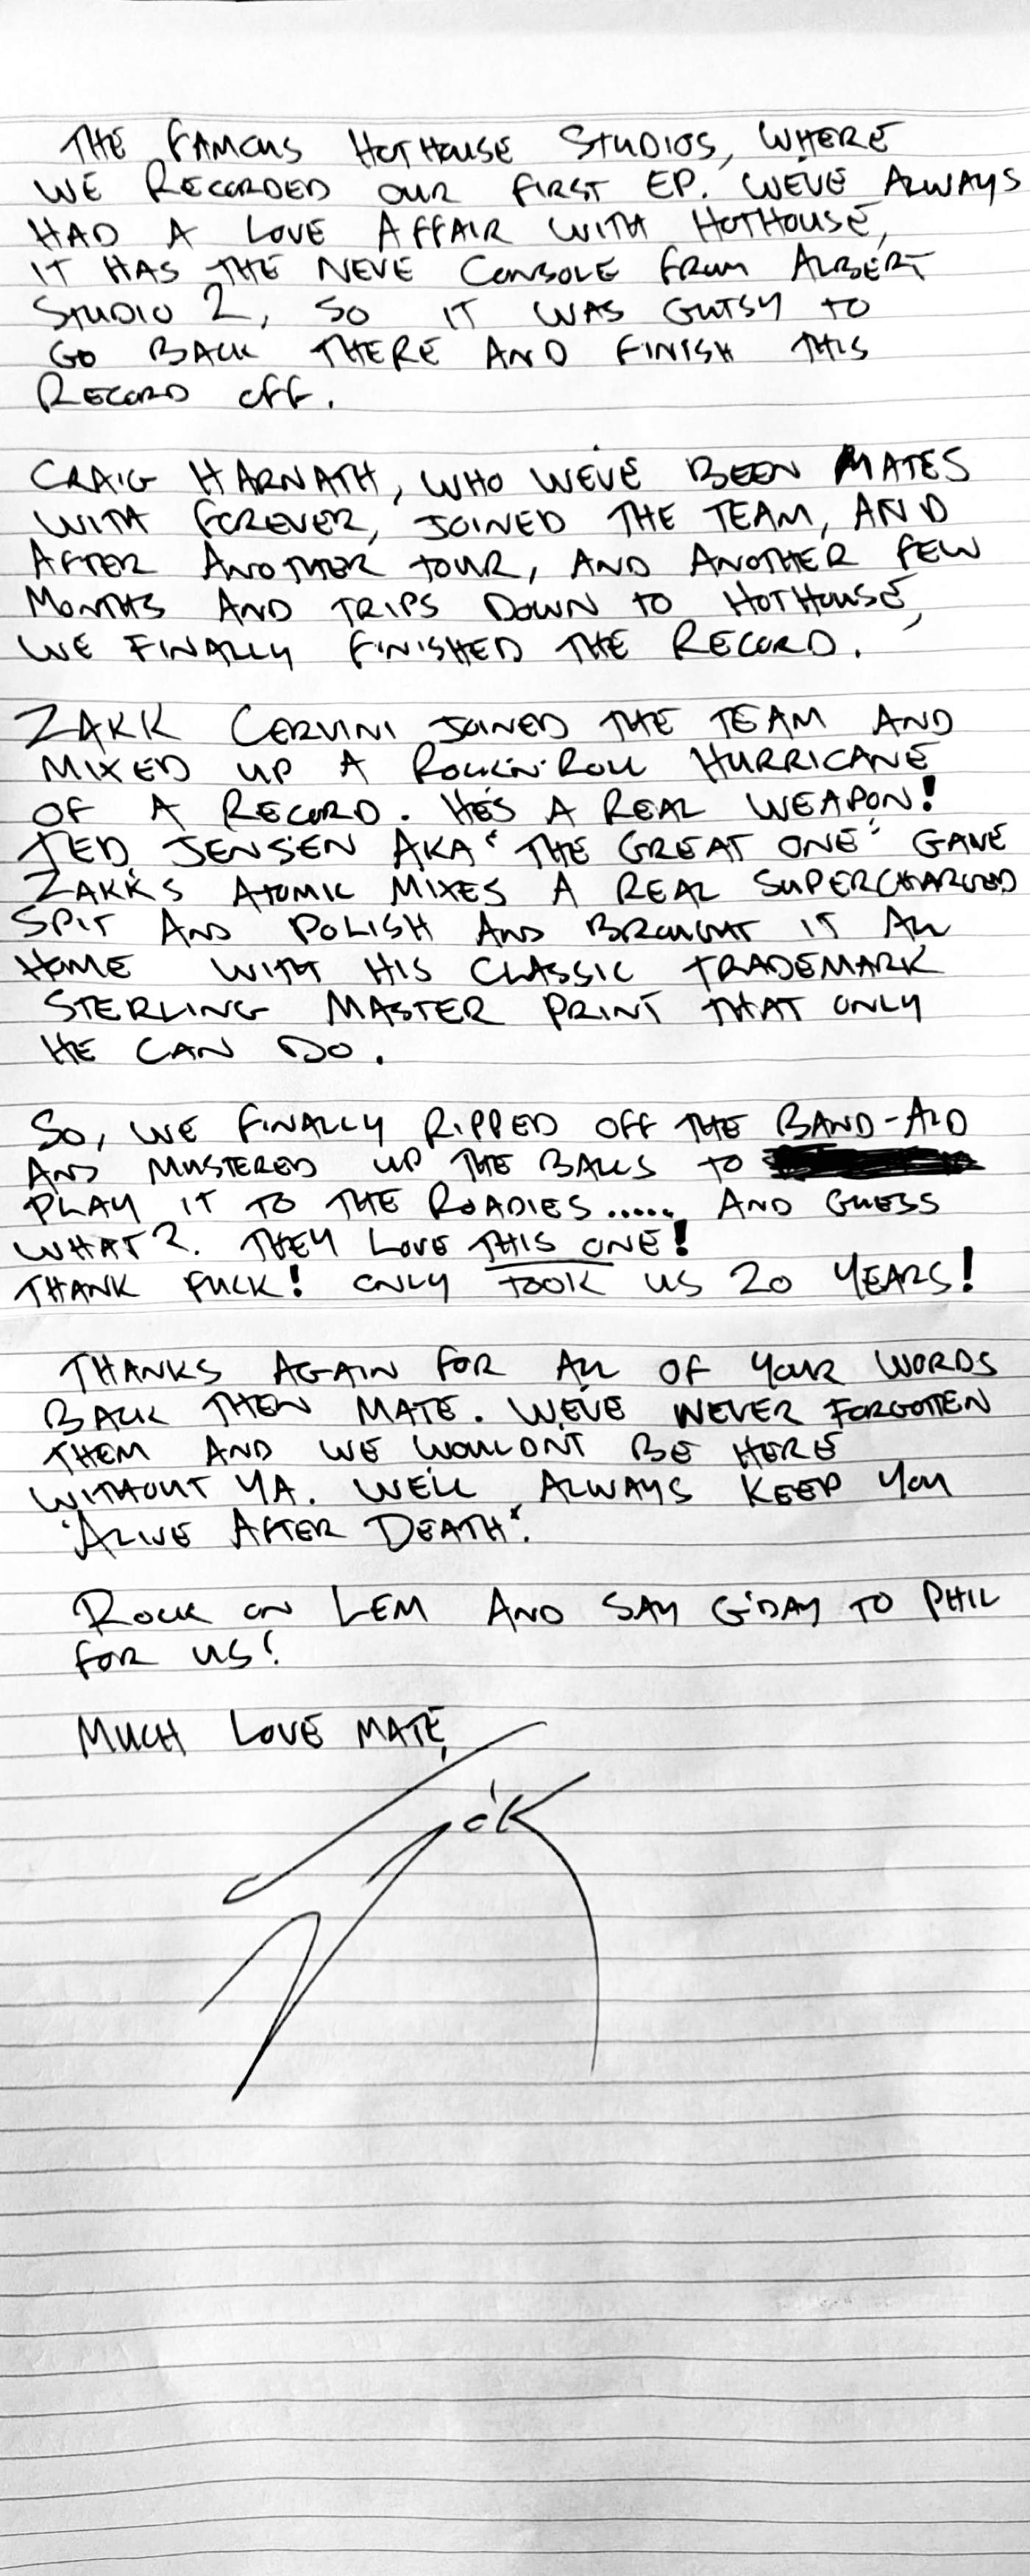 THE FAMOUS HOTHOUSE STUDIOS, WHERE
WE RECORDED OUR FIRST EP. WE'VE ALWAYS
HAD A LOVE AFFAIR WITH HOTHOUSE,
IT HAS THE NEVE CONSOLE FROM ALBERT
STUDIO 2, SO IT WAS GUTSY TO
GO BACK THERE AND FINISH THIS
RECORD OFF.
CRAIG HARNATH, WHO WE'VE BEEN MATES
WITH FOREVER, JOINED THE TEAM, AND
AFTER ANOTHER TOUR, AND ANOTHER FEW
MONTHS AND TRIPS DOWN TO HOTHOUSE,
WE FINALLY FINISHED THE RECORD.
ZAKK CERVINI JOINED THE TEAM AND
MIXED UP A ROCK'N'ROLL HURRICANE
OF A RECORD. HE'S A REAL WEAPON!
TED JENSEN AKA 'THE GREAT ONE' GAVE
ZAKK'S ATOMIC MIXES A REAL SUPERCHARGED
SPIT AND POLISH AND BROUGHT IT ALL
HOME WITH HIS CLASSIC TRADEMARK
STERLING MASTER PRINT THAT ONLY
HE CAN DO.
SO, WE FINALLY RIPPED OFF THE BAND-AID
AND MUSTERED UP THE BALLS TO
PLAY IT TO THE ROADIES ..... AND GUESS
WHAT?. THEY LOVE THIS ONE!
THANK FUCK! ONLY TOOK US 20 YEARS!
THANKS AGAIN FOR ALL OF YOUR WORDS
BACK THEN MATE. WE'VE NEVER FORGOTTEN
THEM AND WE WOULDN'T BE HERE
WITHOUT YA. WE'LL ALWAYS KEEP YOU
'ALIVE AFTER DEATH'.
ROCK ON LEM AND SAY G'DAY TO PHIL
FOR US!
MUCH LOVE MATE,